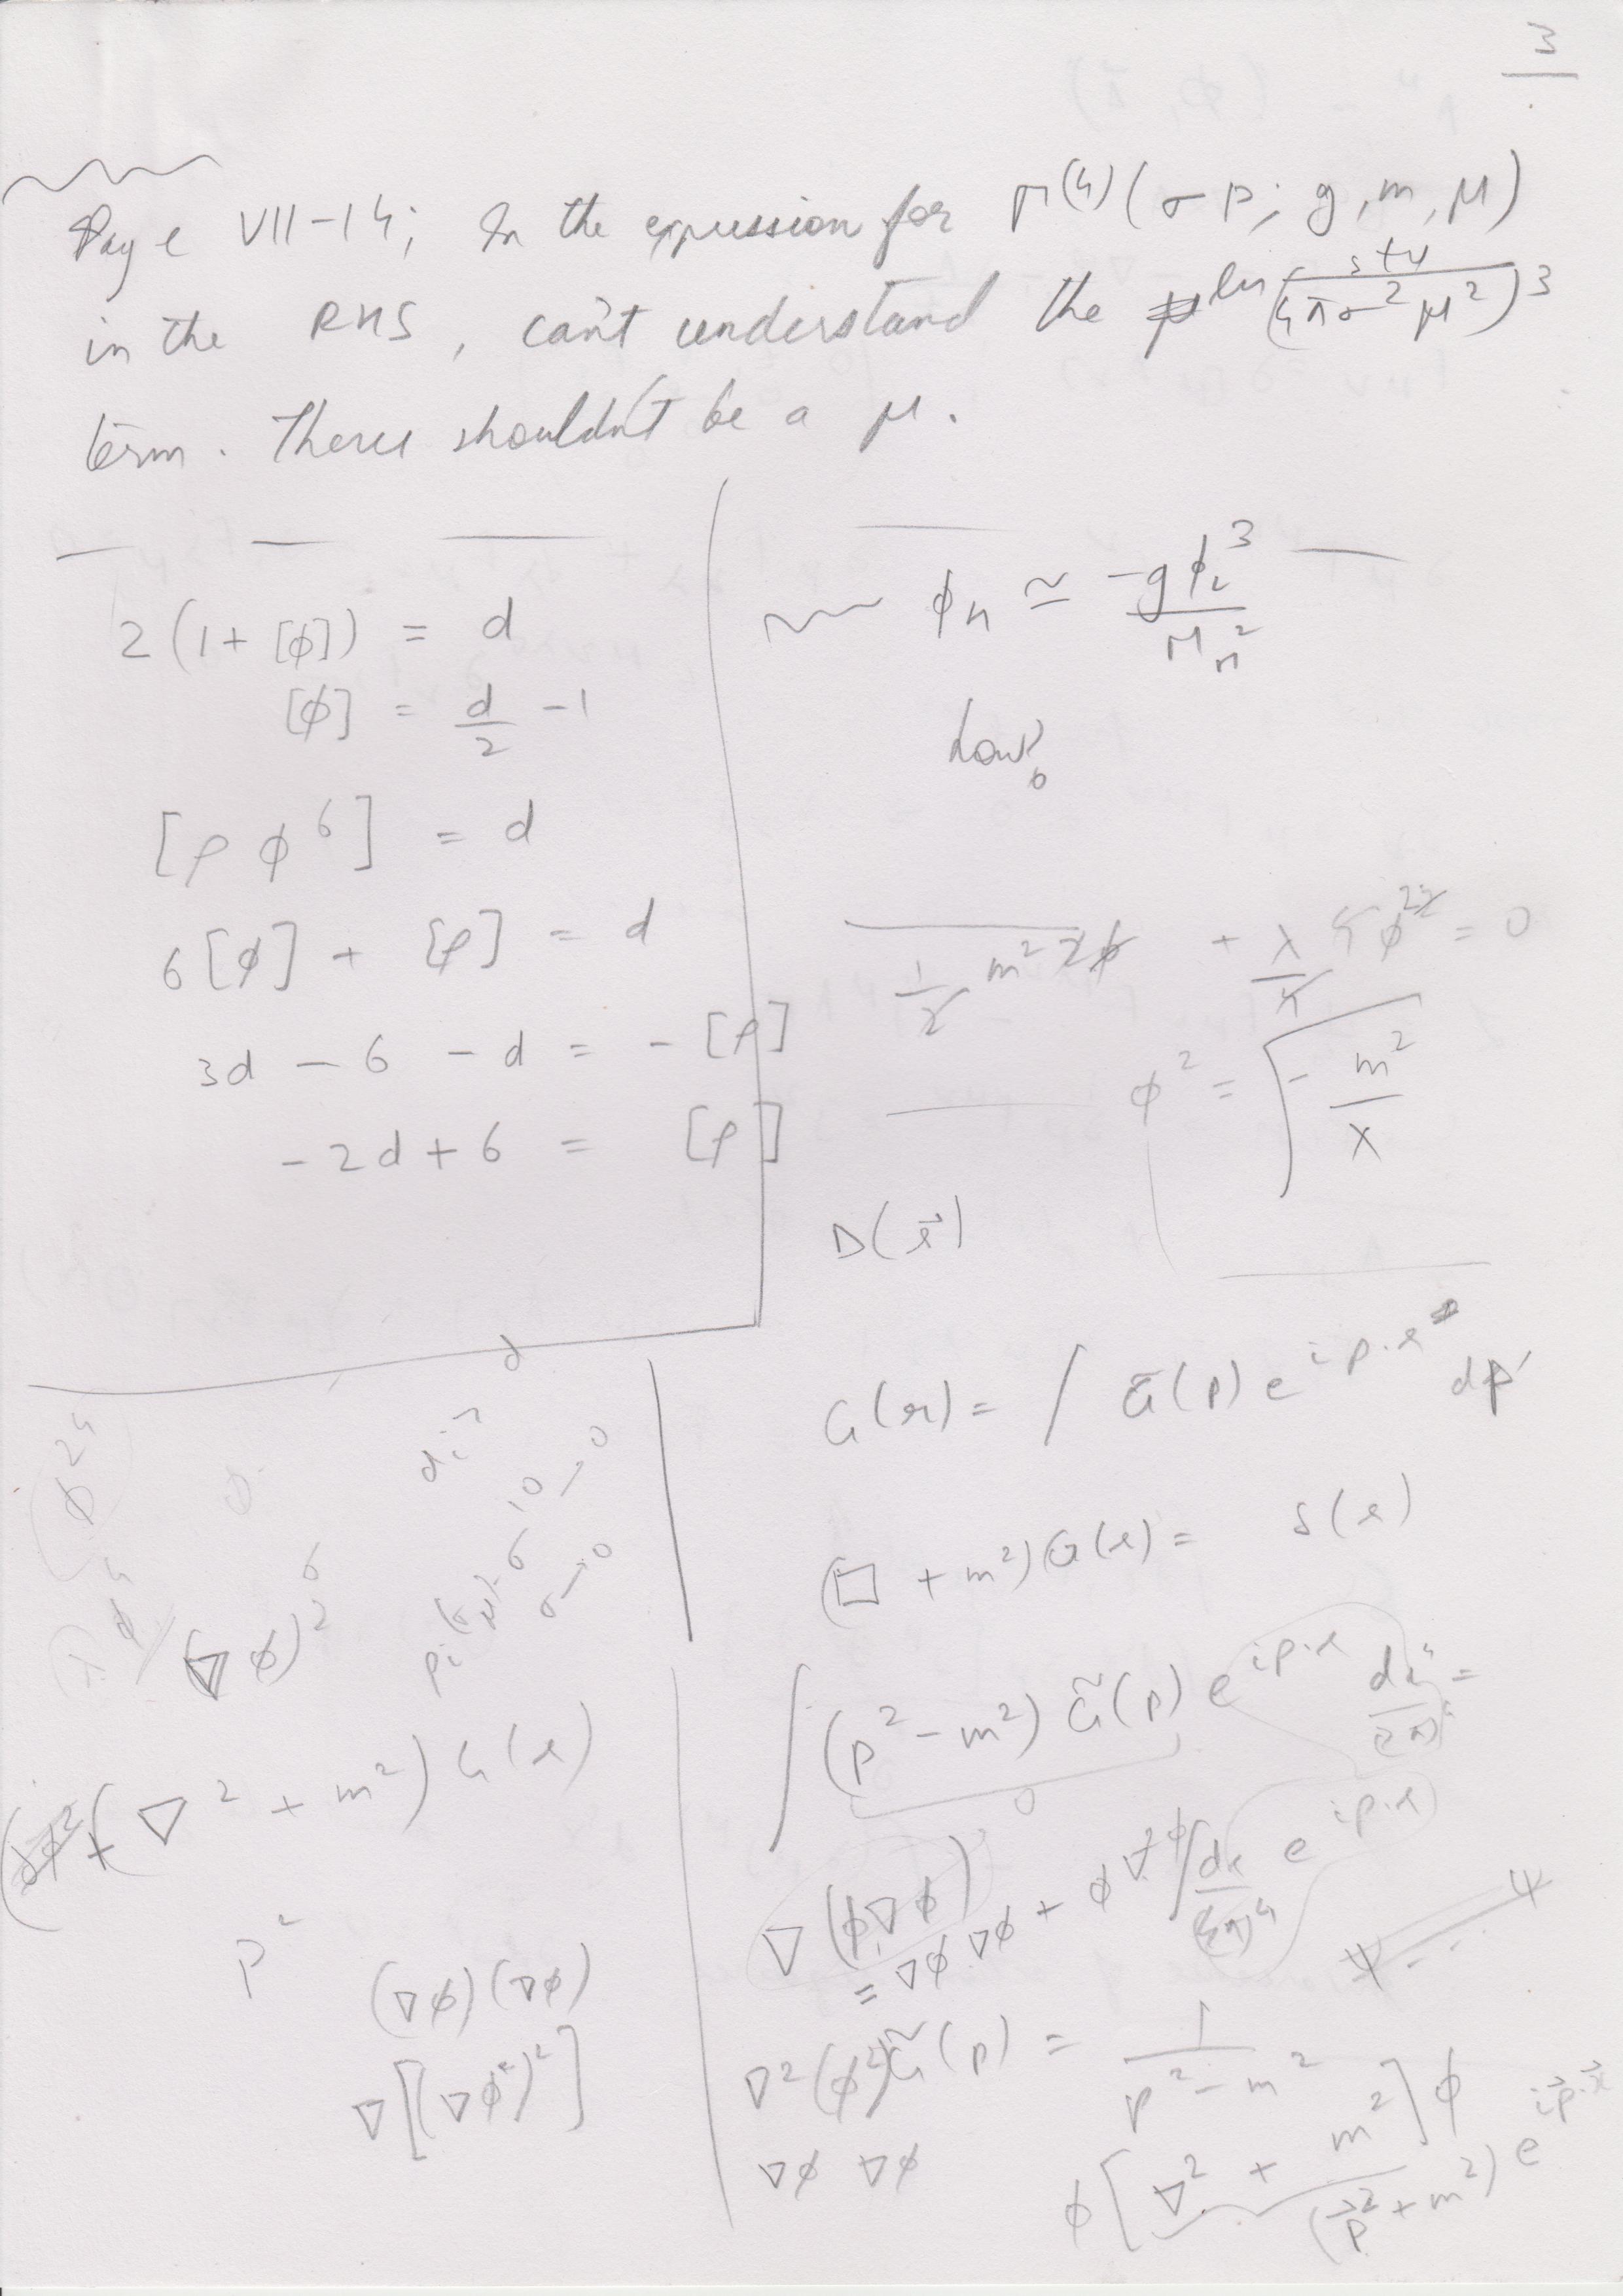 3
Page VII-14; In the expression for Γ⁽⁴⁾(σp; g, m, μ)
in the RHS, can't understand the ln (s+u / 4πσ²μ²)³
term. There shouldn't be a μ.
2(1+[ϕ]) = d
[ϕ] = d/2 - 1
[ρϕ⁶] = d
6[ϕ] + [ρ] = d
3d - 6 - d = -[ρ]
-2d + 6 = [ρ]
ϕ_H ≃ -gϕ_L³ / M_H²
how?
1/2 m² 2ϕ + λ/4 4ϕ² = 0
ϕ² = √(-m²/λ)
D(x⃗)
G(x) = ∫ G̃(p) e^{ip.x} dp
(□ + m²)G(x) = δ(x)
∫ (p² - m²) G̃(p) e^{ip.x} dx⁴/(2π)⁴ =
∫ dx/(2π)⁴ e^{ip.x}
∇(ϕ∇ϕ)
= ∇ϕ.∇ϕ + ϕ∇²ϕ
G̃(p) = 1/(p² - m²)
∇²(ϕ²)
∇ϕ ∇ϕ
ϕ[∇² + m²]ϕ
(p⃗² + m²) e^{ip⃗.x⃗}
(∇ϕ)²
(∇² + m²) G(x)
p²
(∇ϕ)(∇ϕ)
∇[(∇ϕ²)²]